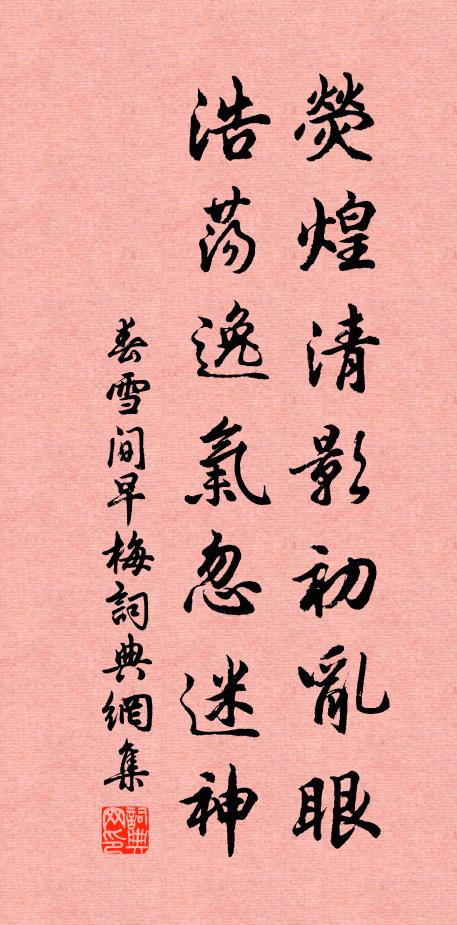 熒煌清影初亂眼
浩荡逸氣忽迷神
春雪间早梅詞典網集
詞典
网印